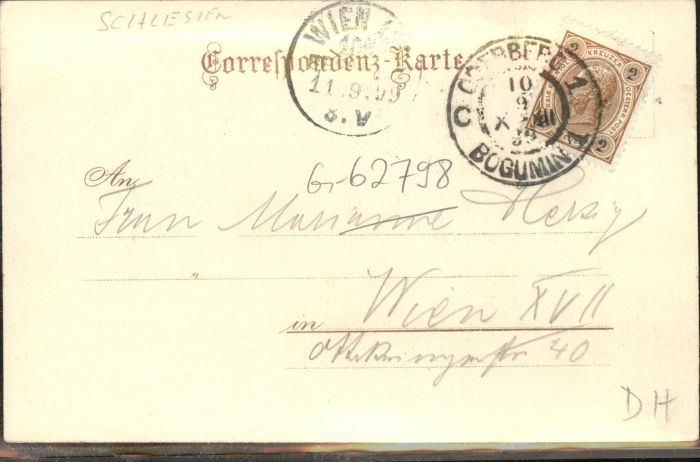 SCHLESIEN
WIEN
11.9.99
8.V
Correspondenz-Karte
ODERBERG 1
10
9
99
BOGUMIN
2 KREUZER 2
2 2
An
Gr-62798
Frau Marianne Herzig
in Wien XVII
Ottakringerstr 40
DH